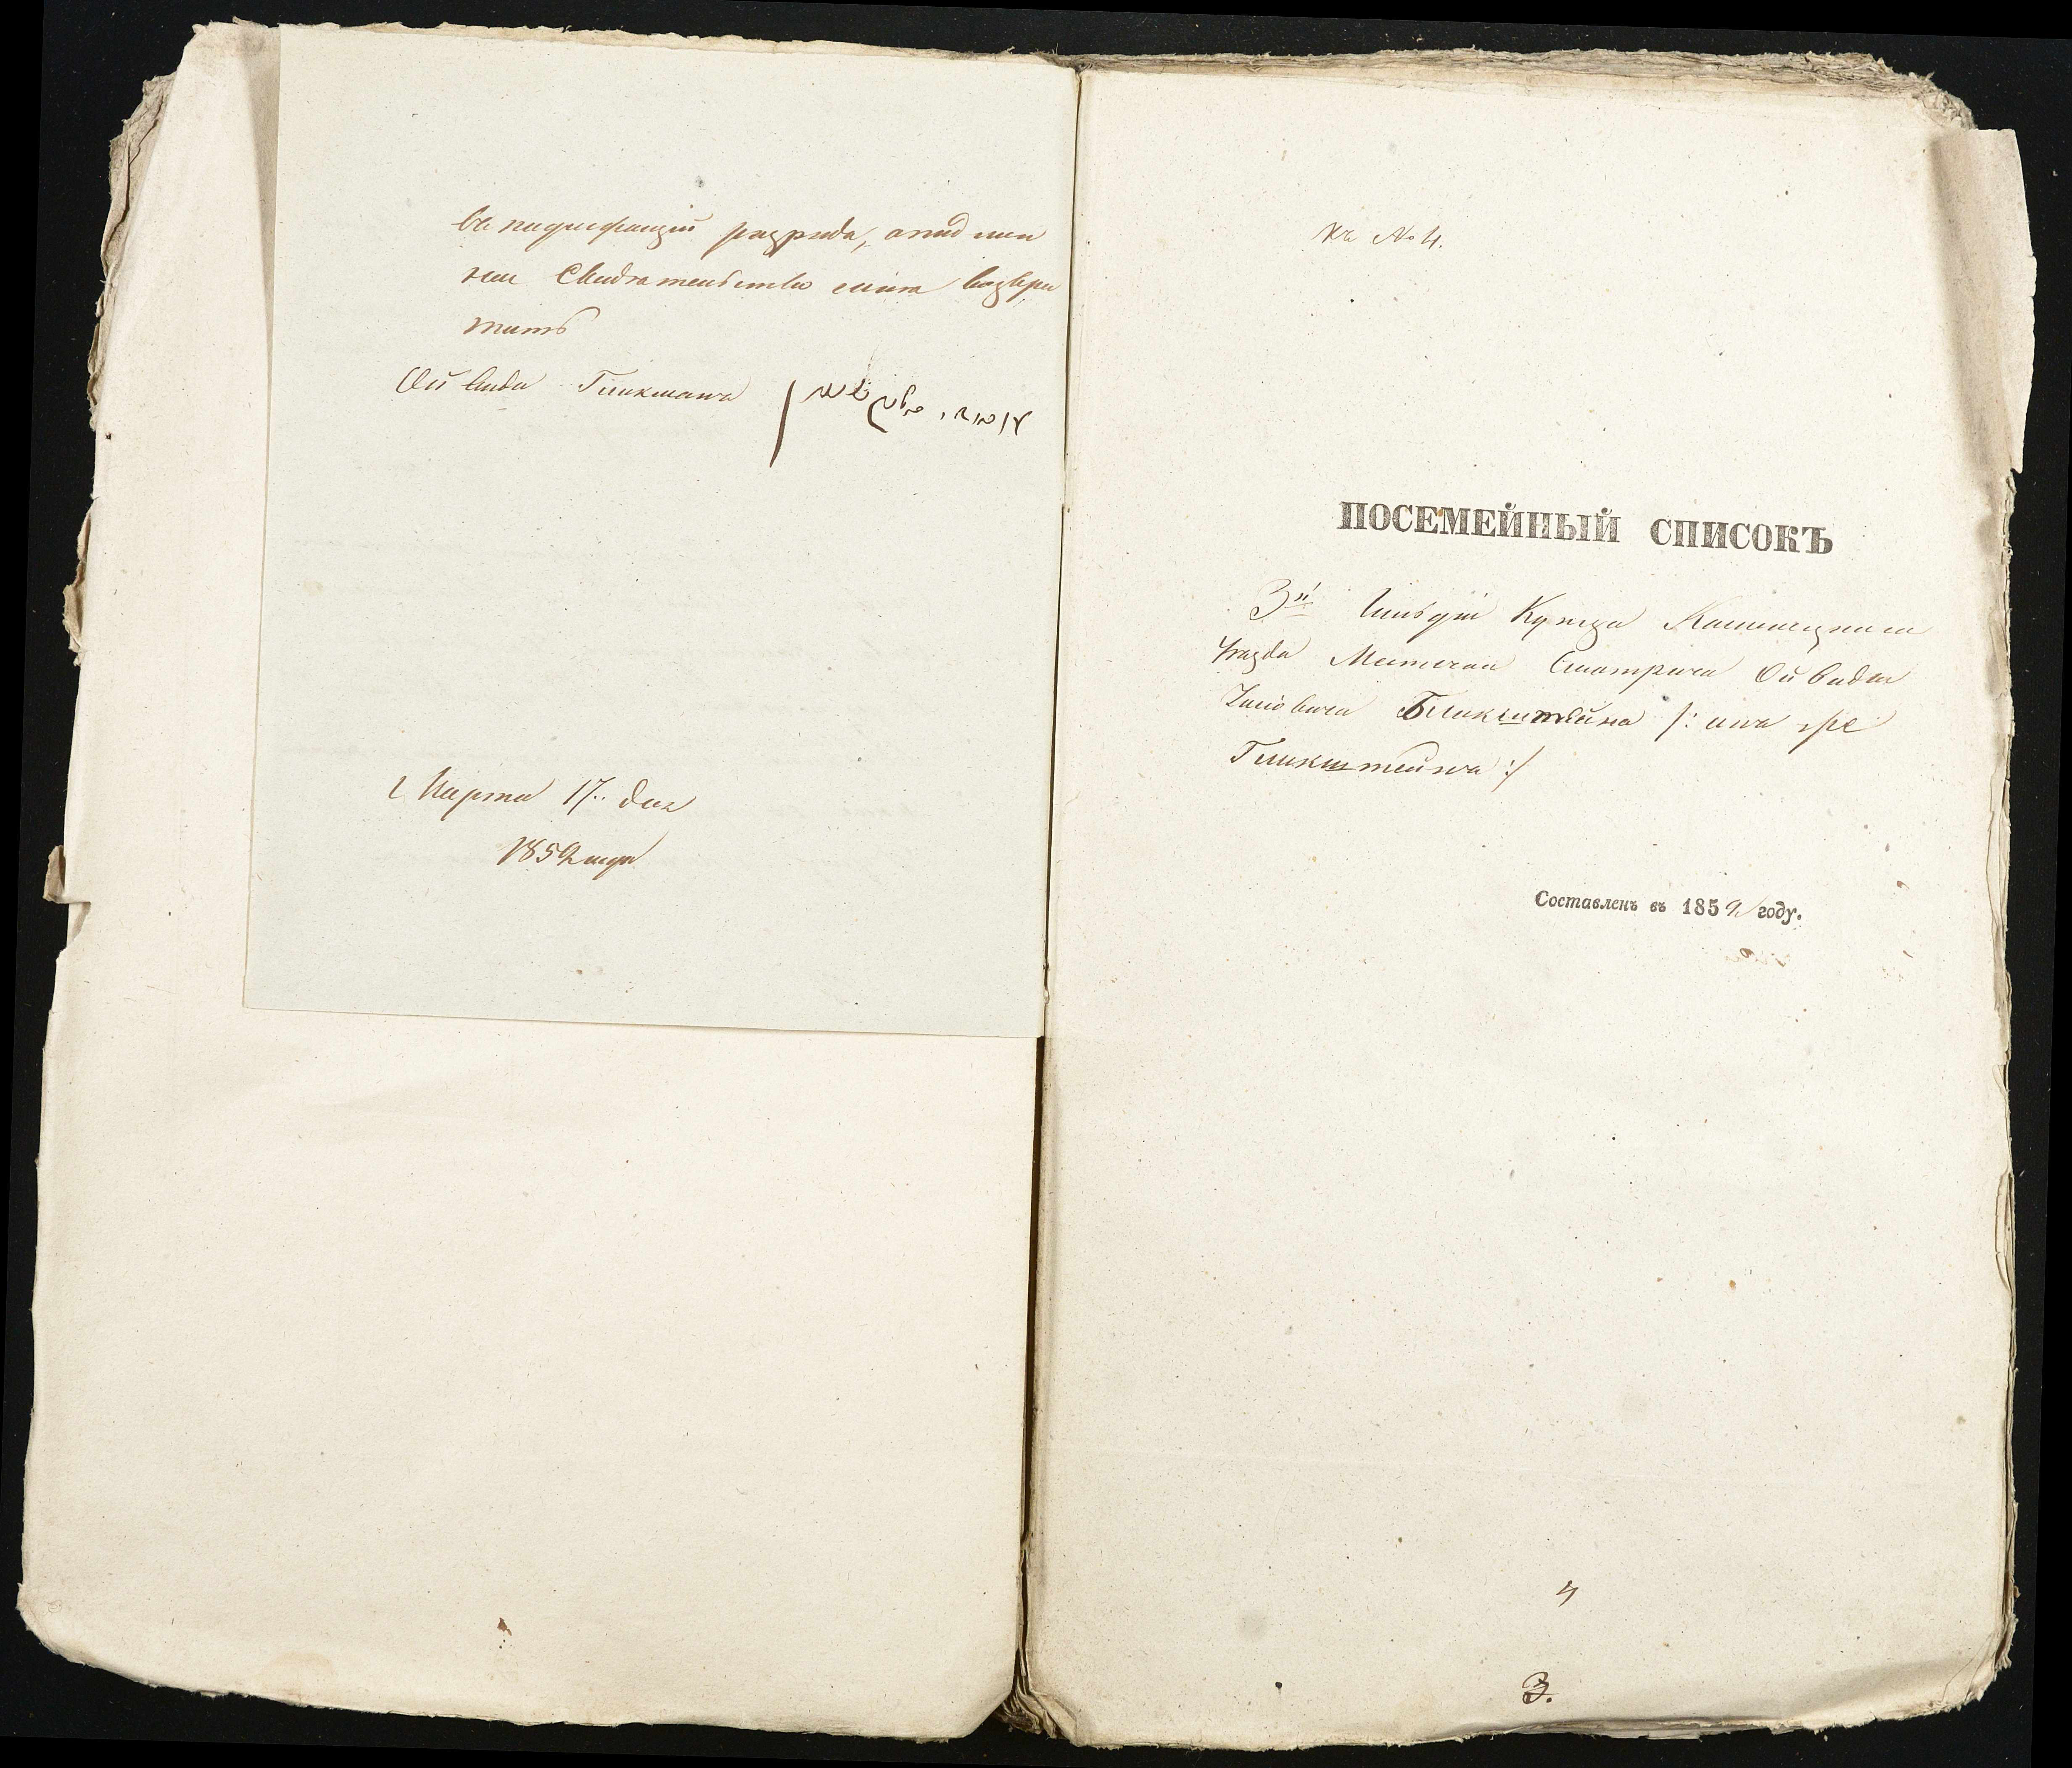 въ надлежащій разрядъ, а подлин
ное Свидѣтельство мнѣ возвра
тить
Ойвида Гликмана
Марта 17 дня
1859 года
Къ № 4.
ПОСЕМЕЙНЫЙ СПИСОКЪ
3й Гильдіи Купца Каменецкаго
Уѣзда Местечка Смотрича
Гликштейна /: онъ же
Гликштейнъ :/
Составленъ въ 1859 году.
4
3.